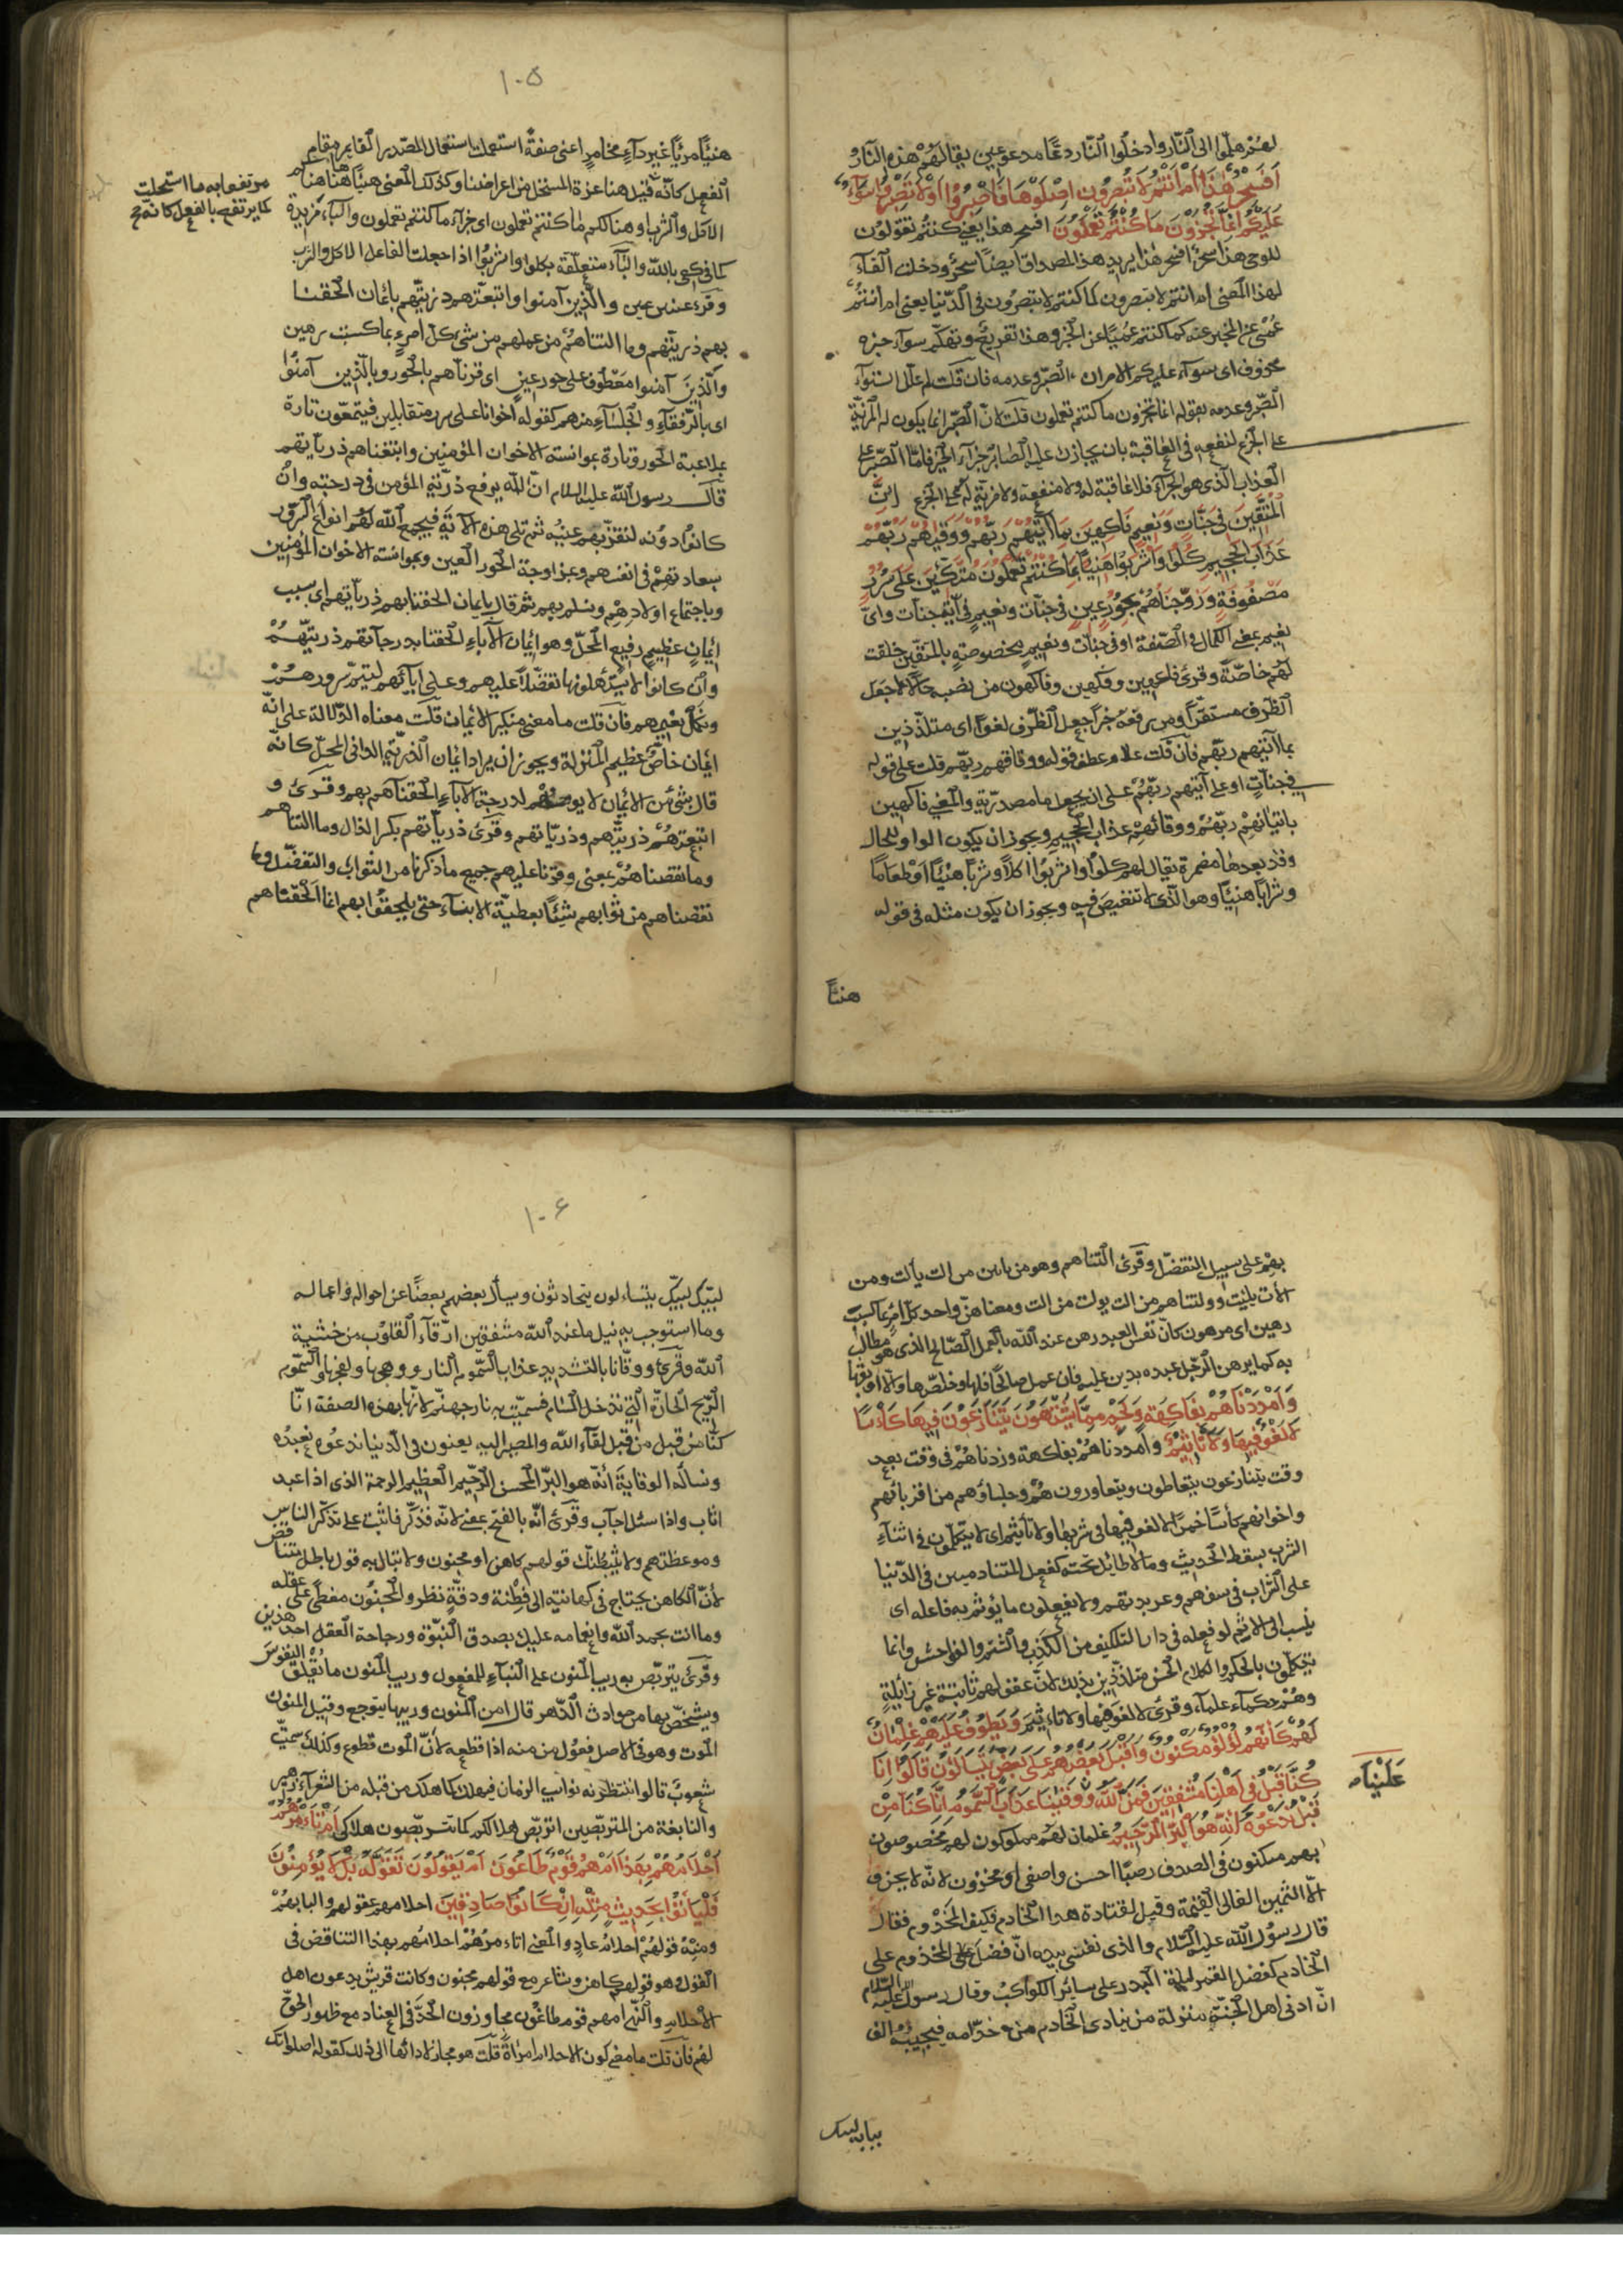 لهم هلموا الى النار وادخلوا النار دعا مدعوعين يقال لهم هذه النار
أَفَسِحْرٌ هَذَا أَمْ أَنْتُمْ لَا تُبْصِرُونَ اصْلَوْهَا فَاصْبِرُوا أَوْ لَا تَصْبِرُوا سَوَاءٌ
عَلَيْكُمْ إِنَّمَا تُجْزَوْنَ مَا كُنْتُمْ تَعْمَلُونَ افسحر هذا يعني كنتم تقولون
للوحى هذا سحر افسحر هذا يريد هذا المصداق ايضا سحر ودخلت الفاء
لهذا المعنى ام انتم لا تبصرون كما كنتم لا تبصرون في الدنيا يعنى ام انتم
عمى عن المخبر عنه كما كنتم عميا عن الخبر وهذا تقريع وتهكم سواء خبره
محذوف اى سواء عليكم الامران الصبر وعدمه فان قلت لم علل استواء
الصبر وعدمه بقوله انما تجزون ما كنتم تعملون قلت لان الصبر انما يكون له المزية
على الجزع لنفعه في العاقبة بان يجازى عليه الصابر جزاء الخير فاما الصبر على
العذاب الذى هو الجزاء فلا عاقبة له ولا منفعة ولا مزية له على الجزع إِنَّ
الْمُتَّقِينَ فِي جَنَّاتٍ وَنَعِيمٍ فَاكِهِينَ بِمَا آتَيهُمْ رَبُّهُمْ وَوَقَيهُمْ رَبُّهُمْ
عَذَابَ الْجَحِيمِ كُلُوا وَاشْرَبُوا هَنِيئًا بِمَا كُنْتُمْ تَعْمَلُونَ مُتَّكِئِينَ عَلَى سُرُرٍ
مَصْفُوفَةٍ وَزَوَّجْنَاهُمْ بِحُورٍ عِينٍ في جنات ونعيم في اية جنات واى
نعيم بمعنى الكمال في الصفة او في جنات ونعيم مخصوصة بالمتقين خلقت
لهم خاصة وقرئ فاكهين وفكهين وفاكهون من نصبه حالا جعل
الظرف مستقرا ومن رفعه خبرا جعل الظرف لغوا اى متلذذين
بما آتيهم ربهم فان قلت علام عطف قوله ووقاهم ربهم قلت على قوله
في جنات او على آتيهم ربهم على ان يجعل ما مصدرية والمعنى فاكهين
باتيانهم ربهم ووقائهم عذاب الجحيم ويجوز ان يكون الواو للحال
وقد بعدها مضمرة يقال لهم كلوا واشربوا اكلا وشربا هنيئا او طعاما
وشرابا هنيئا وهو الذى لا تنغيص فيه ويجوز ان يكون مثله في قوله
هنيئا
١٠٥
هنيئا مريئا غير داء مخامر اعنى صفة استعملت استعمال المصدر القايم مقام
الفعل كانه قيل هنا عزة المستحل من اعراضنا وكذلك المعنى هنيئا ههنا هناكم
مرتفعا به ما استحلت
كما يرتفع بالفعل كانه
الاكل والشرب او هناكم ما كنتم تعملون اى جزاء ما كنتم تعملون والباء مزيدة
كما في كفى بالله والباء متعلقة بكلوا واشربوا اذا جعلت الفاعل الاكل والشرب
وقرئ بعيس عين والذين آمنوا واتبعتهم ذريتهم بايمان الحقنا
بهم ذريتهم وما التناهم من عملهم من شئ كل امرئ بما كسبت رهين
والذين آمنوا معطوف على حور عين اى قرناهم بالحور وبالذين آمنوا
اى بالرفقاء والجلساء منهم كقوله اخوانا على سرر متقابلين فيتمتعون تارة
بملاعبة الحور وتارة بموانسة الاخوان المؤمنين واتبعناهم ذرياتهم
قال رسول الله عليه السلام ان الله يرفع ذرية المؤمن في درجته وان
كانوا دونه لتقر بهم عينه ثم تلى هذه الآية فيجمع الله لهم انواع السرور
بسعادتهم في انفسهم وبمزاوجة الحور العين وبموانسة الاخوان المؤمنين
وباجتماع اولادهم ونسلهم بهم ثم قال بايمان الحقنا بهم ذرياتهم اى بسبب
ايمان عظيم رفيع المحل وهو ايمان الآباء الحقنا بدرجاتهم ذريتهم
وان كانوا لا يستأهلونها تفضلا عليهم وعلى آبائهم ليتم سرورهم
ونكمل نعيمهم فان قلت ما معنى تنكير الايمان قلت معناه الدلالة على انه
ايمان خاص عظيم المنزلة ويجوز ان يراد ايمان الذرية الدانى المحل كانه
قال بشئ من الايمان لا يوصلهم لدرجة الآباء الحقناهم بهم وقرئ و
اتبعتهم ذريتهم وذرياتهم وقرئ ذرياتهم بكسر الذال وما التناهم
وما نقصناهم يعنى وفرنا عليهم جميع ما ذكرنا من الثواب والتفضل وما
نقصناهم من ثوابهم شيئا بعطية الابناء حتى يلحقوا بهم انما الحقناهم
بهم على سبيل التفضل وقرئ التناهم وهو من بابين من الت يألت ومن
الات يليت وولتناهم من الت يولت من الت ومعناهن واحد كل امرئ بما كسب
رهين اى مرهون كان نفس العبد رهن عند الله بالعمل الصالح الذى هو مطالب
به كما يرهن الرجل عبده بدين عليه فان عمل صالحا فكها وخلصها والا اوبقها
وَأَمْدَدْنَاهُمْ بِفَاكِهَةٍ وَلَحْمٍ مِمَّا يَشْتَهُونَ يَتَنَازَعُونَ فِيهَا كَأْسًا
لَا لَغْوٌ فِيهَا وَلَا تَأْثِيمٌ وامددناهم بفاكهة وزدناهم في وقت بعد
وقت يتنازعون يتعاطون ويتعاورون هم وجلساؤهم من اقربائهم
واخوانهم كأسا خمرا لا لغو فيها في شربها ولا تأثيم اى لا يتكلمون في اثناء
الشرب بسقط الحديث وما لا طائل تحته كفعل المتنادمين في الدنيا
على الشراب في سفههم وعربدتهم ولا يفعلون ما يؤثم به فاعله اى
ينسب الى الاثم لو فعله في دار التكليف من الكذب والشتم والفواحش وانما
يتكلمون بالحكم والكلام الحسن متلذذين بذلك لان عقولهم ثابتة غير زائلة
وهم حكماء علماء وقرئ لا لغو فيها ولا تأثيم وَيَطُوفُ عَلَيْهِمْ غِلْمَانٌ
لَهُمْ كَأَنَّهُمْ لُؤْلُؤٌ مَكْنُونٌ وَأَقْبَلَ بَعْضُهُمْ عَلَى بَعْضٍ يَتَسَاءَلُونَ قَالُوا إِنَّا
كُنَّا قَبْلُ فِي أَهْلِنَا مُشْفِقِينَ فَمَنَّ اللَّهُ وَوَقَيْنَا عَذَابَ السَّمُومِ إِنَّا كُنَّا مِنْ
عَلَيْنَا
قَبْلُ نَدْعُوهُ إِنَّهُ هُوَ الْبَرُّ الرَّحِيمُ غلمان لهم مملوكون لهم مخصوصون
بهم مكنون في الصدف رصبا احسن واصفى او مخزون لانه لا يخزن
الا الثمين الغالى القيمة وقيل لقتادة هذا الخادم وكيف المخدوم فقال
قال رسول الله عليه السلام والذى نفسى بيده ان فضل المخدوم على
الخادم كفضل القمر ليلة البدر على سائر الكواكب وقال رسول الله عليه السلام
ان ادنى اهل الجنة منزلة من ينادى الخادم من خدامه فيجيبه الف
ببابه لبيك
١٠٦
لبيك لبيك يتساءلون يتحادثون ويسأل بعضهم بعضا عن احواله واعماله
وما استوجب به نيل ما عند الله مشفقين ارقاء القلوب من خشية
الله وقرئ ووقانا بالتشديد عذاب السموم النار ووهجها ولفحها والسموم
الريح الحارة التي تدخل المسام فسميت به نار جهنم لانها بهذه الصفة انا
كنا من قبل من قبل لقاء الله والمصير اليه يعنون في الدنيا ندعوه نعبده
ونسأله الوقاية انه هو البر المحسن الرحيم العظيم الرحمة الذى اذا عبد
اثاب واذا سئل اجاب وقرئ انه بالفتح بمعنى لانه فذكر فاثبت على تذكر الناس
وموعظتهم ولا يثبطنك قولهم كاهن او مجنون ولا تبال به قول باطل متناقض
لان الكاهن يحتاج في كهانته الى فطنة ودقة نظر والمجنون مغطى على عقله
وما انت بحمد الله وانعامه عليك بصدق النبوة ورجاحة العقل احد هذين
وقرئ يتربص به ريب المنون على البناء للمفعول وريب المنون ما يقلق النفوس
ويشخص بها من حوادث الدهر قال امن المنون وريبها يتوجع وقيل المنون
الموت وهو في الاصل فعول من منه اذا قطعه لان الموت قطوع وكذلك سميت
شعوب قالوا ننتظر به نوايب الزمان فيهلك كما هلك من قبله من الشعراء زهير
والنابغة من المتربصين اتربص هلاككم كما تتربصون هلاكى أَمْ تَأْمُرُهُمْ
أَحْلَامُهُمْ بِهَذَا أَمْ هُمْ قَوْمٌ طَاغُونَ أَمْ يَقُولُونَ تَقَوَّلَهُ بَلْ لَا يُؤْمِنُونَ
فَلْيَأْتُوا بِحَدِيثٍ مِثْلِهِ إِنْ كَانُوا صَادِقِينَ احلامهم عقولهم والبابهم
ومنه قولهم احلام عاد والمعنى اتأمرهم احلامهم بهذا التناقض في
القول وهو قولهم كاهن وشاعر مع قولهم مجنون وكانت قريش يدعون اهل
الاحلام والنهى ام هم قوم طاغون مجاوزون الحد في العناد مع ظهور الحق
لهم فان قلت ما معنى كون الاحلام امرأة قلت هو مجاز لادائها الى ذلك كقوله اصلواتك